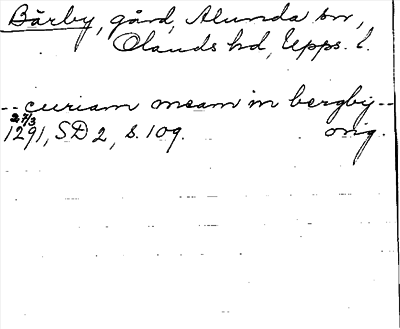 Bärby, gård, Alunda sn,
Olands hd, Upps. l.
-- curiam meam in bergby --
27/3
1291, SD 2, s. 109. orig.